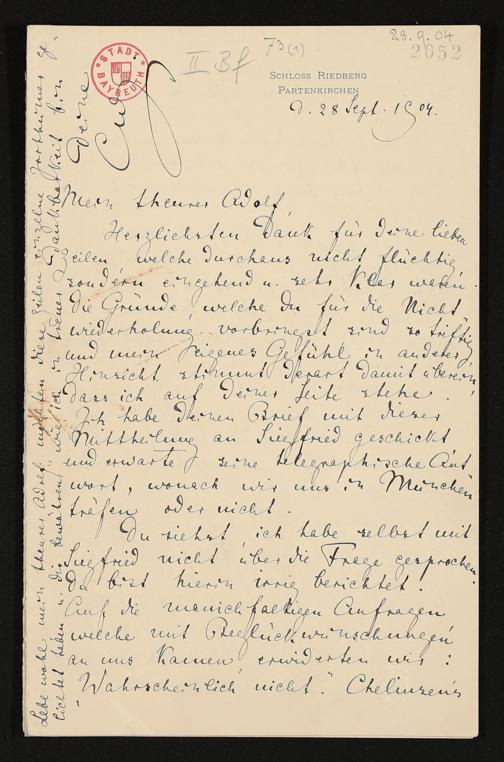 28.9.04
2052
73(1)
II Bf
STADT BAYREUTH
SCHLOSS RIEDBERG
PARTENKIRCHEN
d. 28 Sept. 1904.
Mein theurer Adolf
Herzlichsten Dank für Deine lieben
Zeilen welche durchaus nicht flüchtig
sondern eingehend u. sehr klar waren.
Die Gründe, welche Du für die Nicht
wiederholung vorbringst sind so triftig
und mein eigenes Gefühl in anderer
Hinsicht stimmt derart damit überein,
dass ich auf Deiner Seite stehe.
Ich habe Deinen Brief mit dieser
Mittheilung an Siegfried geschickt
und erwarte seine telegraphische Ant
wort, wonach wir uns in München
träfen oder nicht.
Du siehst, ich habe selbst mit
Siegfried nicht über die Frage gesprochen.
Du bist hierin irrig berichtet.
Auf die manichfaltigen Anfragen
welche mit Beglückwünschungen
an uns kamen erwiderten wir:
"Wahrscheinlich nicht."
Lebe wohl mein theurer Adolf, möchten diese Zeilen einzelne ge
lichtet haben u. Dir bewähren, wie ich in treuer Dankbarkeit bin
Deine